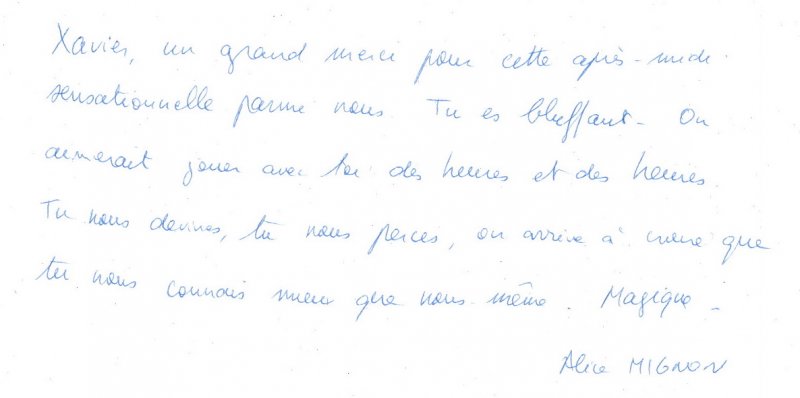 Xavier, un grand merci pour cette après-midi
sensationnelle parmi nous. Tu es bluffant. On
aimerait jouer avec toi des heures et des heures.
Tu nous devines, tu nous perces, on arrive à croire que
tu nous connais mieux que nous-même. Magique.
Alice MIGNON